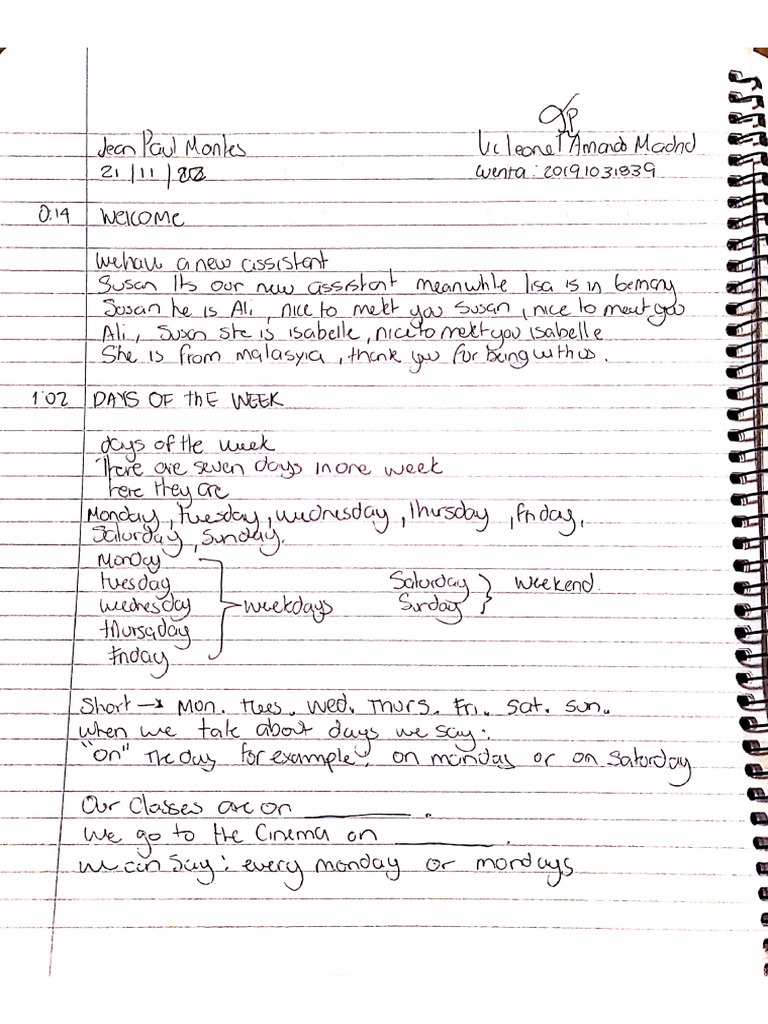 Jean Paul Montes
Lic leonel Amando Madrid
21/11/22
cuenta: 20191031839
0:14 Welcome
we have a new assistant
Susan Its our new assistant meanwhile lisa is in
Susan he is Ali, nice to meet you Susan, nice to meet you
Ali, Susan she is isabelle, nice to meet you isabelle
She is from malasyia, thank you for being with us.
1:02 DAYS OF the WEEK
days of the week
There are seven days in one week
here they are
Monday, tuesday, wednesday, thursday, friday,
Saturday, Sunday.
Monday
tuesday
wednesday
thursday
friday
weekdays
Saturday
Sunday
weekend.
Short → Mon. tues. wed. Thurs. Fri. Sat. Sun.
when we talk about days we say:
"on" the day for example: on monday or on Saturday
Our Classes are on ________.
we go to the Cinema on ________.
we can Say: every monday or mondays